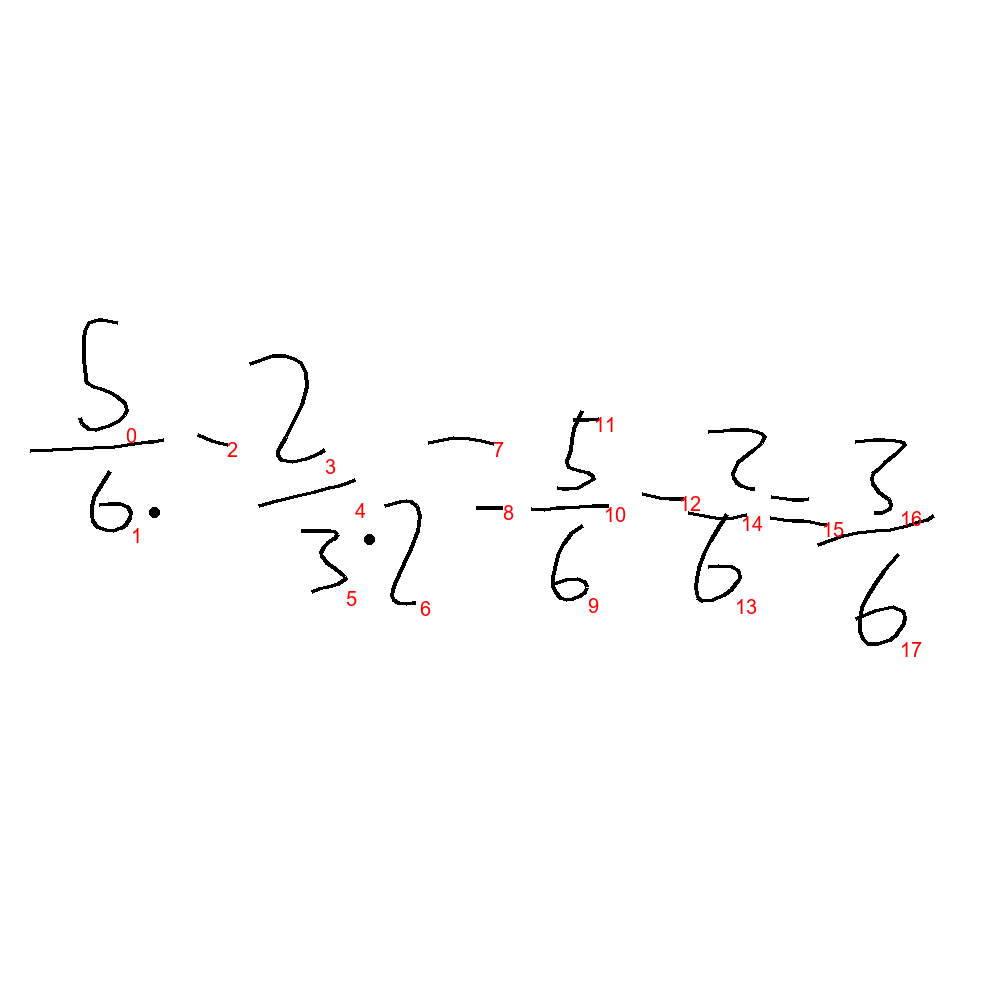 5/6. - 2/3·2 = 5/6 - 2/6 = 3/6
0 1 2 3 4 5 6 7 8 9 10 11 12 13 14 15 16 17